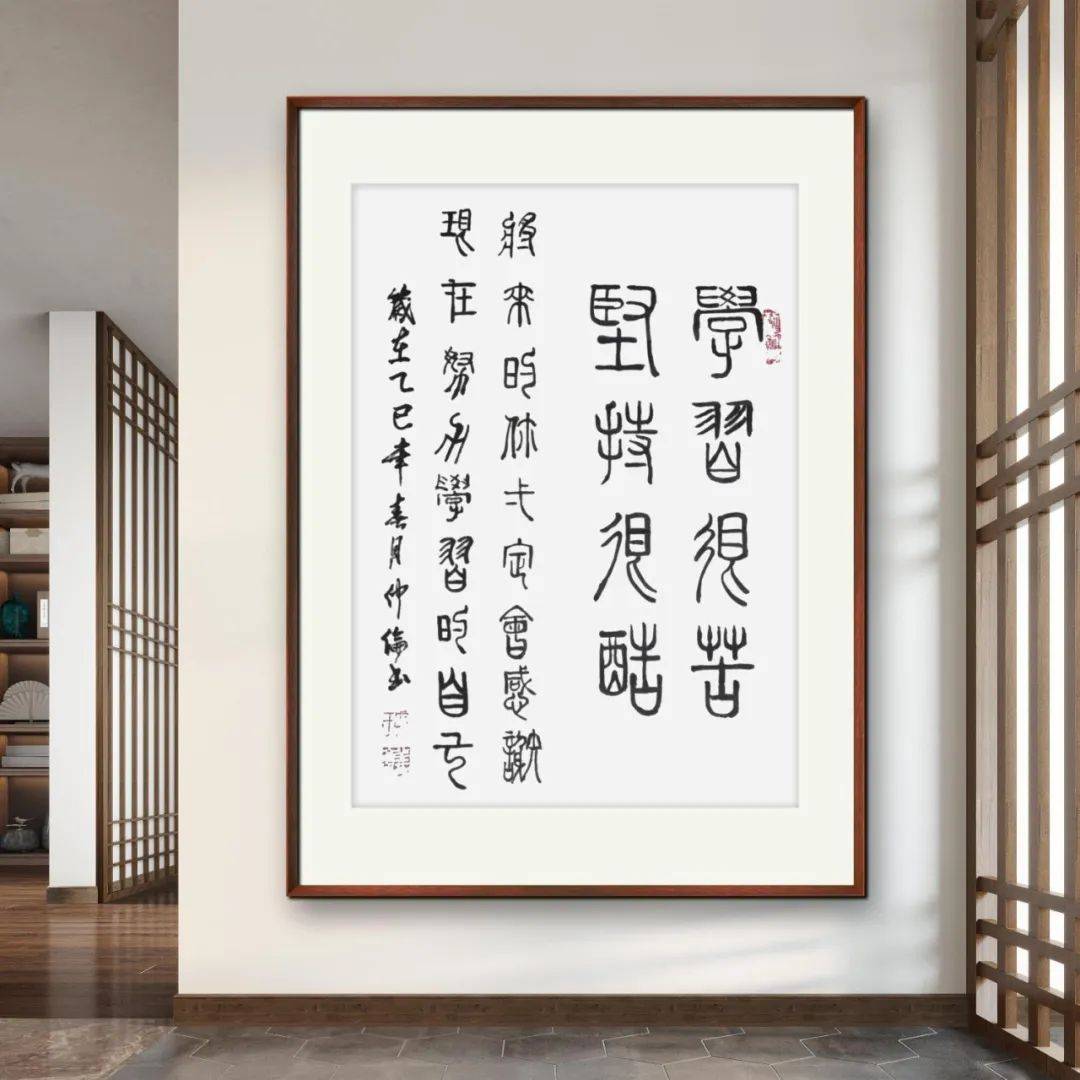 學習很苦
堅持很酷
將來的你一定會感謝
現在努力學習的自己
歲在乙巳年春月仲倫書